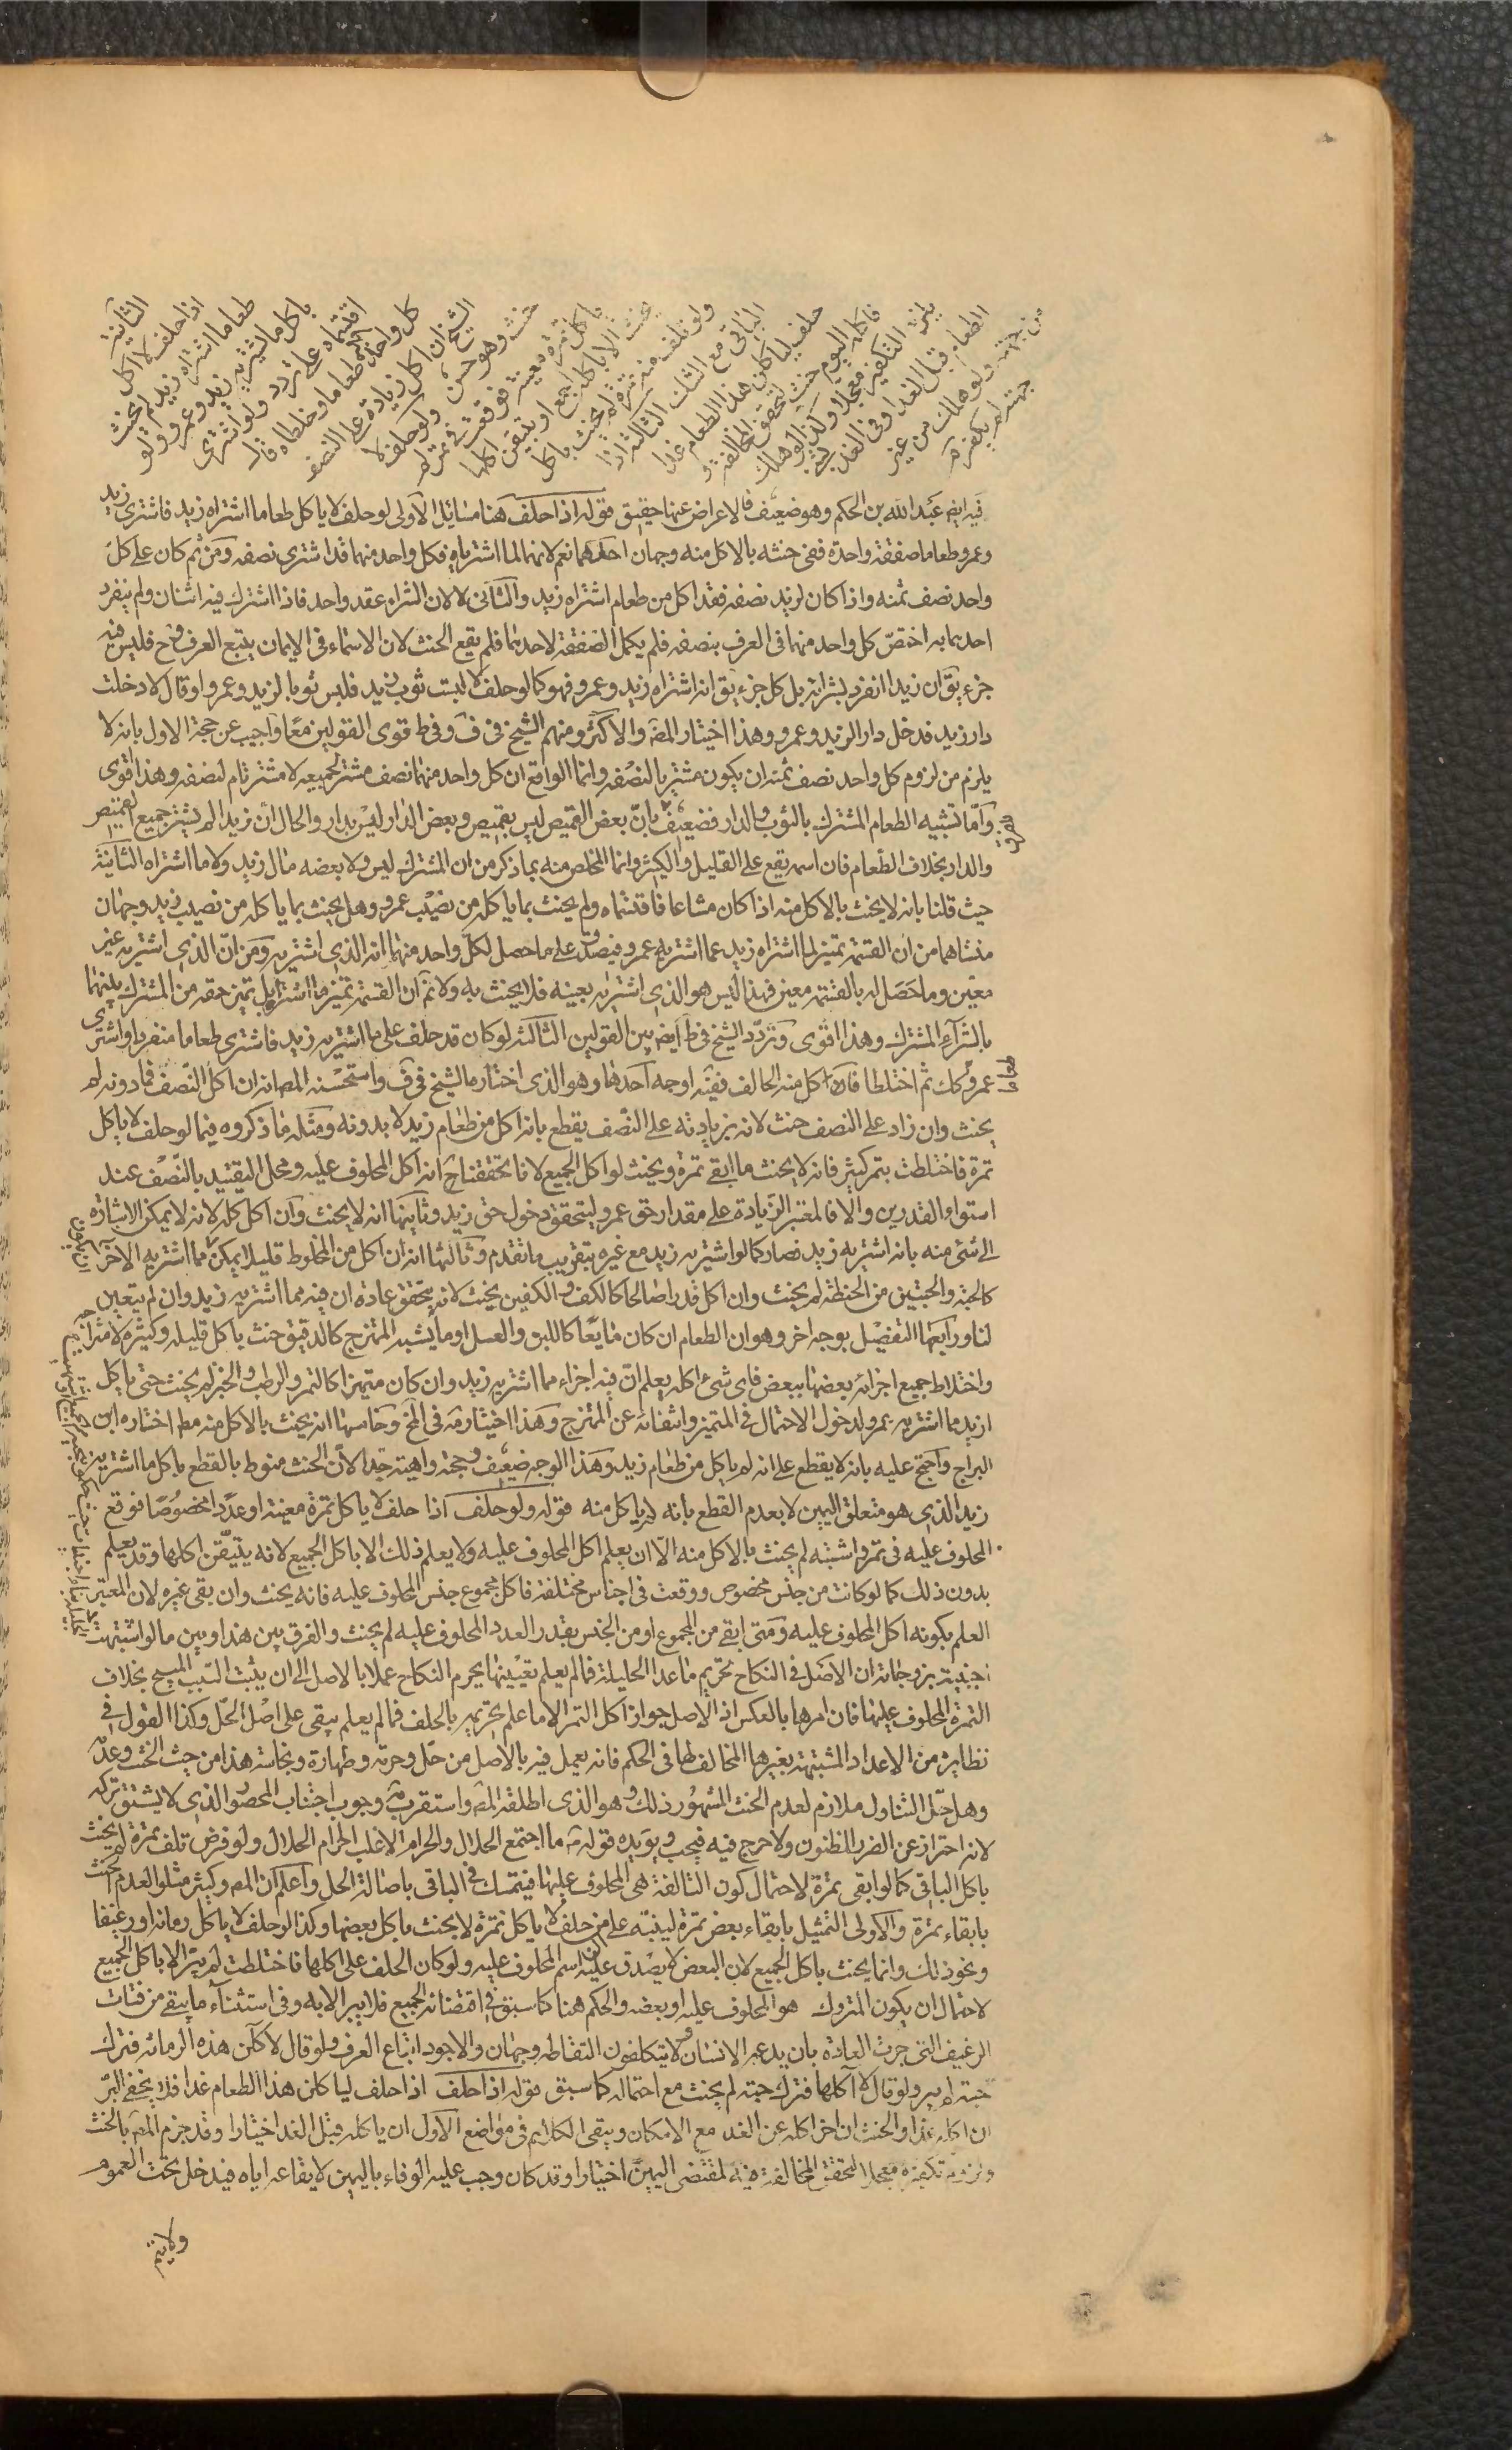 الثانية
اذا حلف لا اكل
طعاما اشتراه زيد لم يحنث
باكل ما يشتريه زيد وعمرو ولو
اقتسماه على تردد ولو اشترى
كل واحد منهما طعاما وخلطاه قال
الشيخ ان اكل زيادة على النصف
حنث وهو حسن ولو حلف لا
ياكل تمرة معينة فوقعت في تمر لم
يحنث الا باكله اجمع او بتيقن اكلها
ولو تلف منه تمرة لم يحنث باكل
الباقي مع الشك الثالثة اذا
حلف لياكلن هذا الطعام غدا
فاكله اليوم حنث لتحقق المخالفة و
يلزمه التكفير معجلا وكذا لو هلك
الطعام قبل الغد او في الغد بشيء
من جهته ولو هلك من غير
جهته لم يكفر م
فيه ايضا عبد الله بن الحكم وهو ضعيف فالاعراض عنها حقيق قوله اذا حلف هنا مسائل الاولى لو حلف لا ياكل طعاما اشتراه زيد فاشترى زيد
وعمرو طعاما صفقة واحدة ففي حنثه بالاكل منه وجهان احدهما نعم لانهما لما اشترياه فكل واحد منهما قد اشترى نصفه ومن ثم كان على كل
واحد نصف ثمنه واذا كان لزيد نصفه فقد اكل من طعام اشتراه زيد والثاني لا لان الشراء عقد واحد فاذا اشترك فيه اثنان ولم ينفرد
احدهما به اختص كل واحد منهما في العرف بنصفه فلم يكمل الصفقة لاحدهما فلم يقع الحنث لان الاسماء في الايمان يتبع العرف وح فليس فيه
جزء يق ان زيدا انفرد بشرائه بل كل جزء يق انه اشتراه زيد وعمرو فهو كما لو حلف لا لبست ثوب زيد فلبس ثوبا لزيد وعمرو او قال لا دخلت
دار زيد فدخل دار الزيد وعمرو وهذا اختيار المص والاكثر ومنهم الشيخ في ف وفي ط قوى القولين معا واجيب عن حجة الاول بانه لا
يلزم من لزوم كل واحد نصف ثمنه ان يكون مشتريا لنصفه وانما الواقع ان كل واحد منهما نصف مشتر لجميعه لا مشتر تام لنصفه وهذا اقوى
واما تشبيه الطعام المشترك بالثوب والدار فضعيف بان بعض القميص ليس بقميص وبعض الدار ليس بدار والحال ان زيدا لم يشتر جميع القميص
والدار بخلاف الطعام فان اسمه يقع على القليل والكثير وانما المخلص منه بما ذكر من ان المشترك ليس ولا بعضه مال زيد ولا ما اشتراه الثانية
حيث قلنا بانه لا يحنث بالاكل منه اذا كان مشاعا فاقتسماه ولم يحنث بما ياكله من نصيب عمرو وهل يحنث بما ياكله من نصيب زيد وجهان
منشاهما من ان القسمة تميز لما اشتراه زيد عما اشتريه عمرو فيصدق على ما حصل لكل واحد منهما انه الذي اشتريه ومن ان الذي اشتريه غير
معين وما حصل له بالقسمة معين فهذا ليس هو الذي اشتريه بعينه فلا يحنث به ولا نم ان القسمة تميز ما اشتراه بل تميز حقه من المشترك بينهما
بالشراء المشترك وهذا اقوى وتردد الشيخ في ط ايضا بين القولين الثالثة لو كان قد حلف على ما اشتريه زيد فاشترى طعاما منفردا واشترى
عمرو كك ثم اختلطا فاكل منه الحالف ففيه اوجه احدها وهو الذي اختاره الشيخ في ف واستحسنه المص انه ان اكل النصف فما دونه لم
يحنث وان زاد على النصف حنث لانه بزيادته على النصف يقطع بانه اكل من طعام زيد لا بدونه ومثله ما ذكروه فيما لو حلف لا ياكل
تمرة فاختلطت بتمر كثير فانه لا يحنث ما ابقى تمرة ويحنث لو اكل الجميع لانا تحققنا ح انه اكل المحلوف عليه ومحل التقييد بالنصف عند
استواء القدرين والا فالمعتبر الزيادة على مقدار حق عمرو ليتحقق دخول حق زيد وثانيها انه لا يحنث وان اكل كله لانه لا يمكن الاشارة
الى شئ منه بانه اشتريه زيد فصار كما لو اشتريه زيد مع غيره بتقريب ما تقدم وثالثها انه ان اكل من المخلوط قليلا يمكن ان يكون مما اشتريه الاخر
كالحبة والحبتين من الحنطة لم يحنث وان اكل قدرا صالحا كالكف والكفين يحنث لانه يتحقق عادة ان فيه مما اشتريه زيد وان لم يتعين
لنا ورابعها التفصيل بوجه اخر وهو ان الطعام ان كان مايعا كاللبن والعسل او ما يشبه الممتزج كالدقيق حنث باكل قليله وكثيره لامتزاجه
واختلاط جميع اجزائه بعضها ببعض فاى شئ اكله يعلم ان فيه اجزاء مما اشتريه زيد وان كان متميزا كالتمر والرطب والخبز لم يحنث حتى ياكل
ازيد مما اشتريه عمرو لدخول الاحتمال في المتميز وانتفائه عن الممتزج وهذا اختياره في المخ وخامسها انه يحنث بالاكل منه مط اختاره ابن
البراج واحتج عليه بانه لا يقطع على انه لم ياكل من طعام زيد وهذا الوجه ضعيف وحجته واهية جدا لان الحنث منوط بالقطع باكل ما اشتريه
زيد الذي هو متعلق اليمين لا بعدم القطع بانه لم ياكل منه قوله ولو حلف اذا حلف لا ياكل تمرة معينة او عددا مخصوصا فوقع
المحلوف عليه في تمر واشتبه لم يحنث بالاكل منه الا ان يعلم اكل المحلوف عليه ولا يعلم ذلك الا باكل الجميع لانه يتيقن اكلها وقد يعلم
بدون ذلك كما لو كانت من جنس مخصوص ووقعت في اجناس مختلفة فاكل مجموع جنس المحلوف عليه فانه يحنث وان بقى غيره لان المعتبر
العلم بكونه اكل المحلوف عليه ومتى ابقى من المجموع او من الجنس بقدر العدد المحلوف عليه لم يحنث والفرق بين هذا وبين ما لو اشتبهت
اجنبية بزوجاته ان الاصل في النكاح تحريم ما عدا الحليلة فما لم يعلم تعيينها يحرم النكاح عملا بالاصل الى ان يثبت السبب المبيح بخلاف
التمرة المحلوف عليها فان امرها بالعكس اذ الاصل جواز اكل التمر الا ما علم تحريمه بالحلف فما لم يعلم يبقى على اصل الحل وكذا القول في
نظايره من الاعداد المشتبهة بغيرها المخالف لها في الحكم فانه يعمل فيه بالاصل من حل وحرمة وطهارة ونجاسة هذا من حيث الحنث وعدمه
وهل حل التناول ملازم لعدم الحنث المشهور ذلك وهو الذي اطلقه المص واستقرب وجوب اجتناب المحصور الذي لا يشق تركه
لانه احتراز عن الضرر المظنون ولا حرج فيه فيجب ويؤيده قوله ما اجتمع الحلال والحرام الا غلب الحرام الحلال ولو فرض تلف تمرة لم يحنث
باكل الباقي كما لو ابقى تمرة لاحتمال كون التالفة هي المحلوف عليها فيتمسك في الباقي باصالة الحل واعلم ان المص وكثير مثلوا لعدم الحنث
بابقاء تمرة والاولى التمثيل بابقاء بعض تمرة لينبه على من حلف لا ياكل تمرة لا يحنث باكل بعضها وكذا لو حلف لا ياكل رمانة او رغيفا
ونحو ذلك وانما يحنث باكل الجميع لان البعض لا يصدق عليه اسم المحلوف عليه ولو كان الحلف على اكلها فاختلطت لم يبر الا باكل الجميع
لاحتمال ان يكون المتروك هو المحلوف عليه او بعضه والحكم هنا كما سبق في اقتضائه الجميع فلا يبر الا به وفي استثناء ما يبقى من فتات
الرغيف التي جرت العادة بان يدعه الانسان ولا يتكلفون التقاطه وجهان والاجود اتباع العرف ولو قال لا كلن هذه الرمانة فترك
حبة لم يبر ولو قال لا اكلها فترك حبة لم يحنث مع احتماله كما سبق قوله اذا حلف اذا حلف لياكلن هذا الطعام غدا فلا يخفى البر
ان اكله غدا والحنث ان اخر اكله عن الغد مع الامكان ويبقى الكلام في مواضع الاول ان ياكله قبل الغد اختيارا وقد جزم المص بالحنث
ولزوم تكفيره معجلا لتحقق المخالفة منه لمقتضى اليمين اختيارا وقد كان وجب عليه الوفاء باليمين لايقاعه اياه فيدخل تحت العموم
ولا يتم